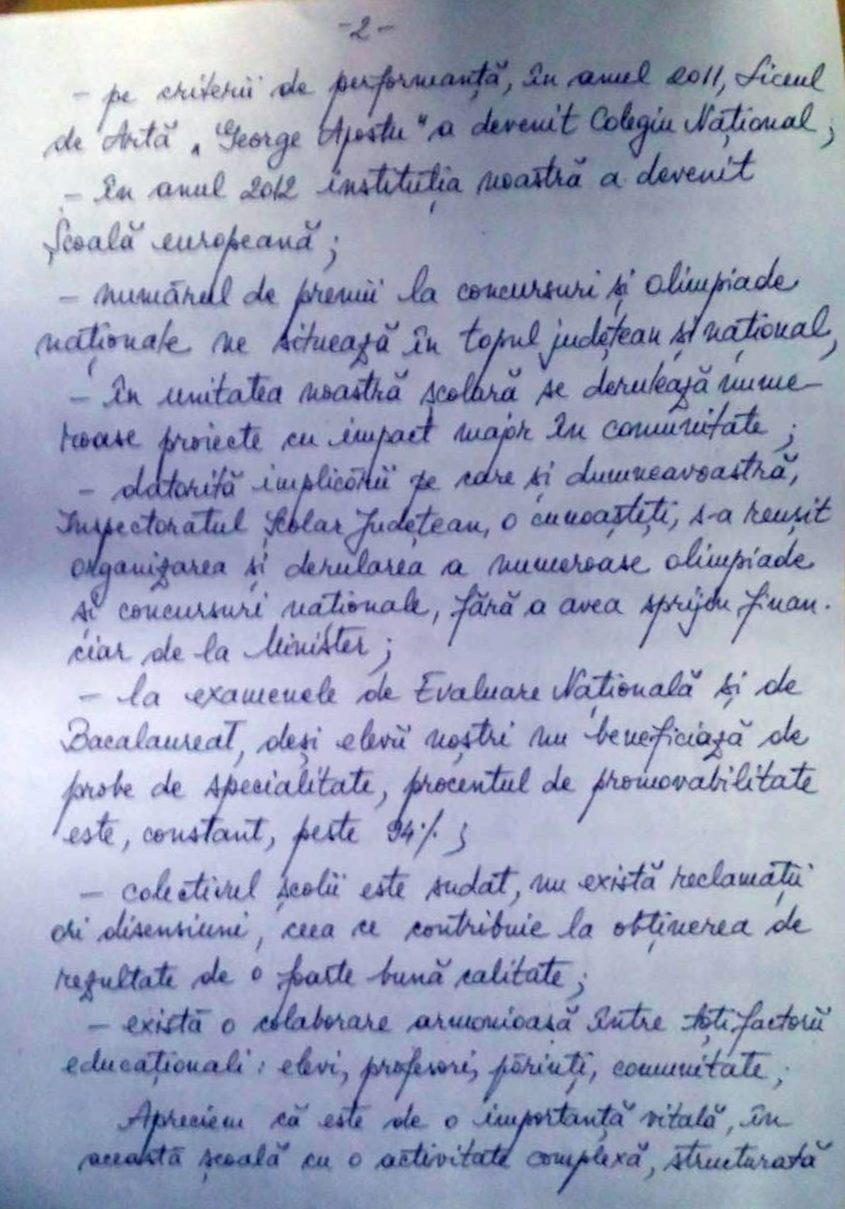 -2-
- pe criterii de performanță, în anul 2011, Liceul
de Artă „George Apostu" a devenit Colegiu Național;
- în anul 2012 instituția noastră a devenit
Școală europeană;
- numărul de premii la concursuri și olimpiade
naționale ne situează în topul județean și național,
- În unitatea noastră școlară se derulează nume-
roase proiecte cu impact major în comunitate;
- datorită implicării pe care și dumneavoastră,
Inspectoratul Școlar Județean, o cunoașteți, s-a reușit
organizarea și derularea a numeroase olimpiade
și concursuri naționale, fără a avea sprijin finan-
ciar de la Minister;
- la examenele de Evaluare Națională și de
Bacalaureat, deși elevii noștri nu beneficiază de
probe de specialitate, procentul de promovabilitate
este, constant, peste 94%;
- colectivul școlii este sudat, nu există reclamații
ori disensiuni, ceea ce contribuie la obținerea de
rezultate de o foarte bună calitate;
- există o colaborare armonioasă între toți factorii
educaționali: elevi, profesori, părinți, comunitate;
Apreciem că este de o importanță vitală, în
această școală cu o activitate complexă, structurată